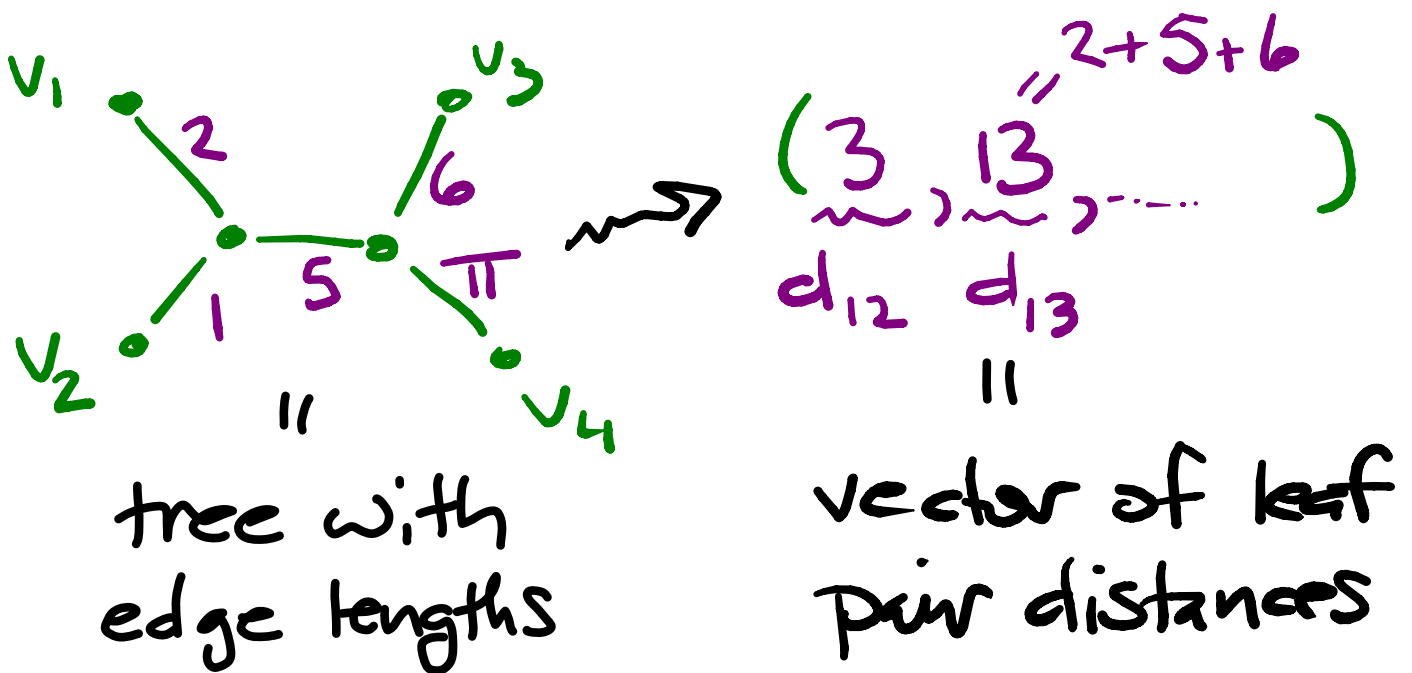 v₁
v₃
2
6
5
1
π
v₂
v₄
=
tree with
edge lengths
2+5+6
=
(3, 13, ......)
d₁₂ d₁₃
=
vector of leaf
pair distances